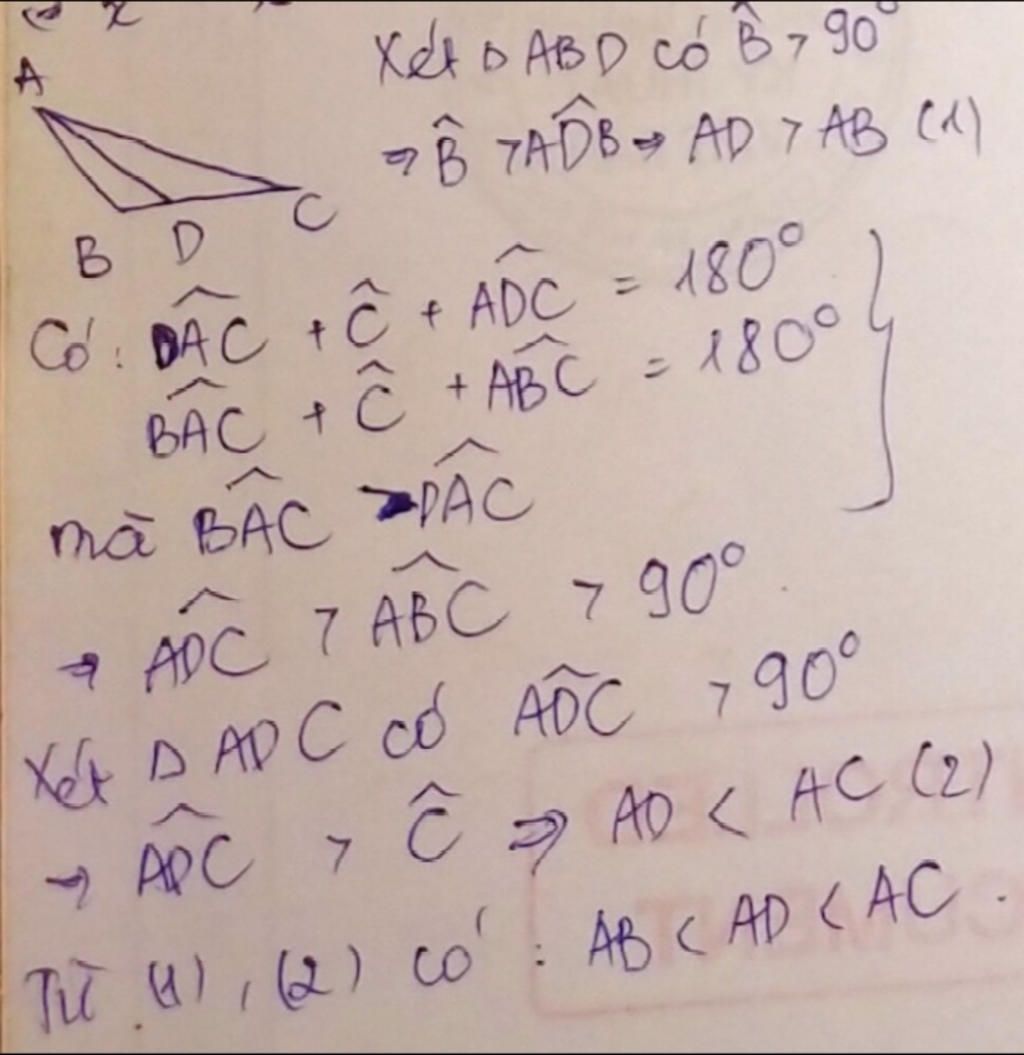 A
B D C
Xét Δ ABD có B̂ > 90°
⇒ B̂ > ADB̂ ⇒ AD > AB (1)
Có: DAĈ + Ĉ + ADĈ = 180°
BAĈ + Ĉ + ABĈ = 180°
mà BAĈ > DAĈ
⇒ ADĈ > ABĈ > 90°
Xét Δ ADC có ADĈ > 90°
⇒ ADĈ > Ĉ ⇒ AD < AC (2)
Từ (1), (2) có: AB < AD < AC.